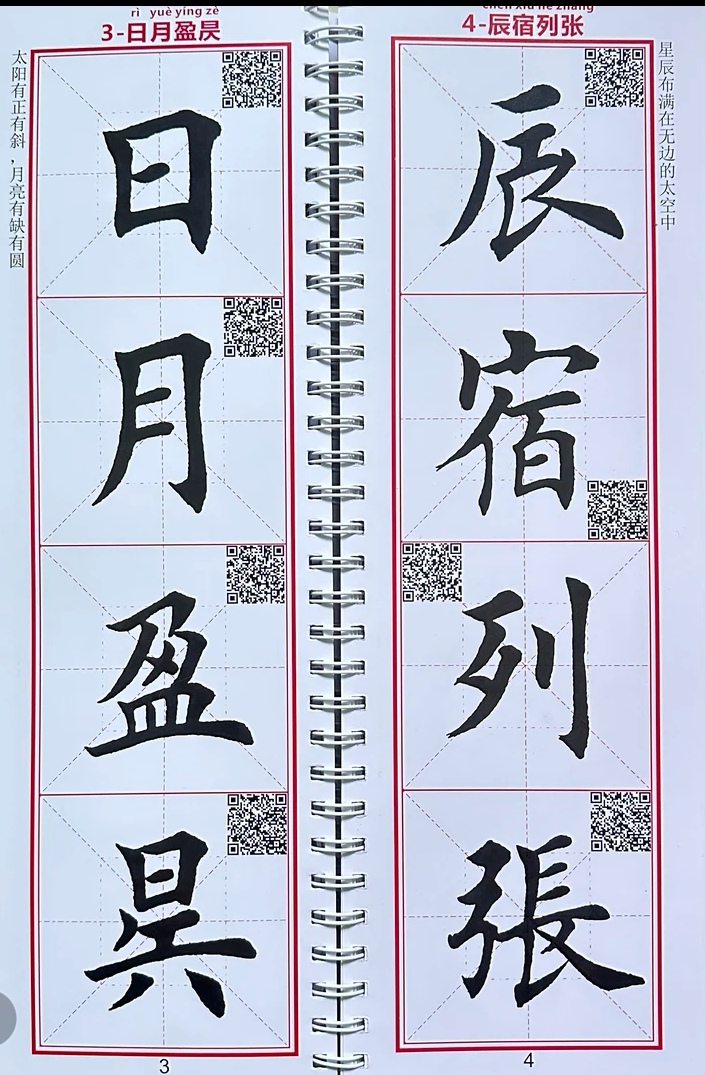 rì yuè yíng zè
3-日月盈昃
太阳有正有斜，月亮有缺有圆
日
月
盈
昃
3
chén xiù liè zhāng
4-辰宿列张
星辰布满在无边的太空中
辰
宿
列
張
4